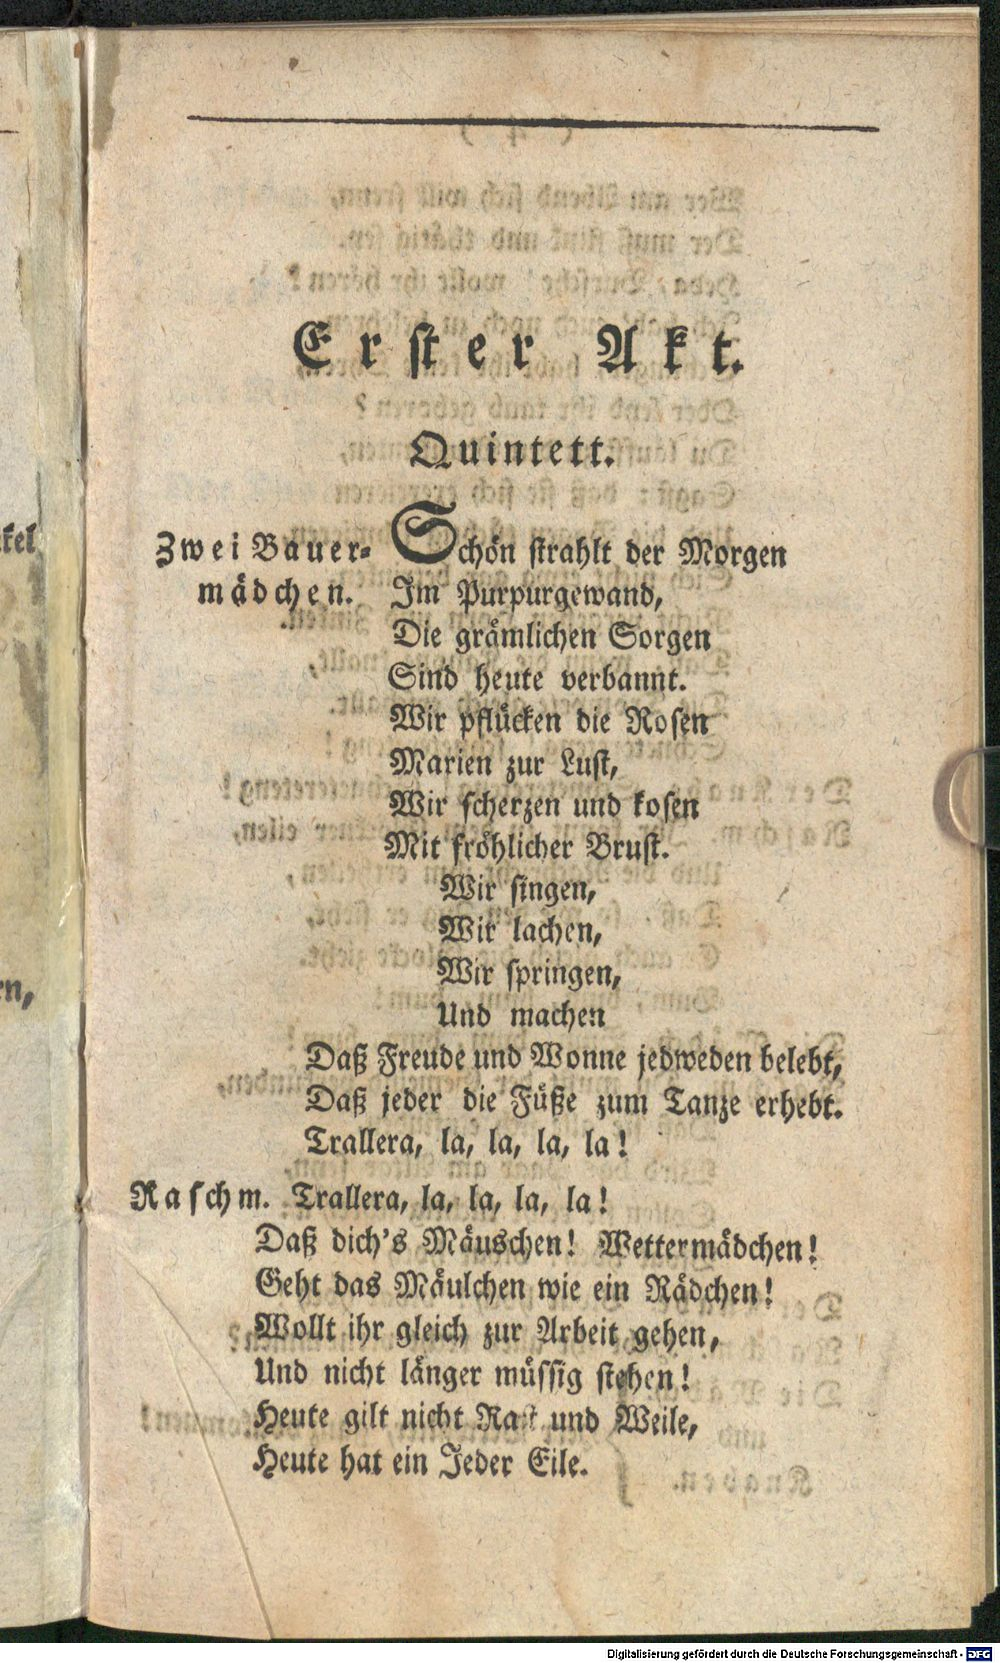 Erster Akt.
Quintett.
Zwei Bauer- Schön strahlt der Morgen
mädchen. Im Purpurgewand,
Die grämlichen Sorgen
Sind heute verbannt.
Wir pflücken die Rosen
Marien zur Lust,
Wir scherzen und kosen
Mit fröhlicher Brust.
Wir singen,
Wir lachen,
Wir springen,
Und machen
Daß Freude und Wonne jedweden belebt,
Daß jeder die Füße zum Tanze erhebt.
Trallera, la, la, la, la!
Raschm. Trallera, la, la, la, la!
Daß dich's Mäuschen! Wettermädchen!
Geht das Mäulchen wie ein Rädchen!
Wollt ihr gleich zur Arbeit gehen,
Und nicht länger müssig stehen!
Heute gilt nicht Rast und Weile,
Heute hat ein Jeder Eile.
Digitalisierung gefördert durch die Deutsche Forschungsgemeinschaft - DFG